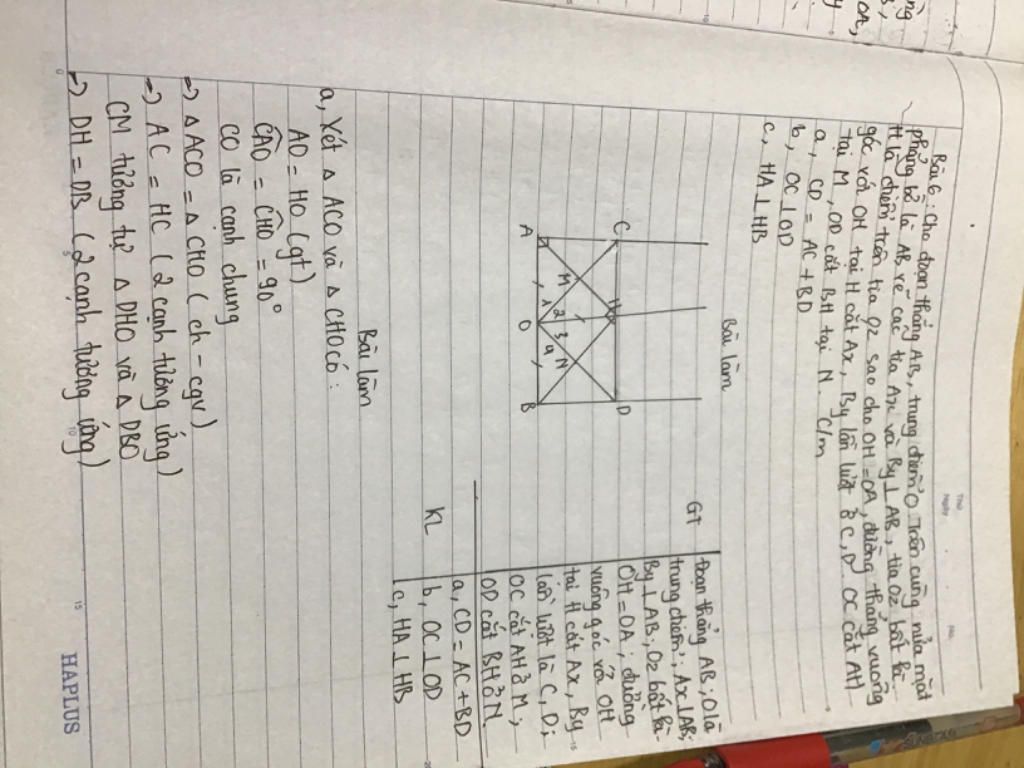 Bài 6: Cho đoạn thẳng AB, trung điểm O. Trên cùng nửa mặt
phẳng bờ là AB vẽ các tia Ax và By ⊥ AB, tia Oz bất kì.
H là điểm trên tia Oz sao cho OH = OA, đường thẳng vuông
góc với OH tại H cắt Ax, By lần lượt ở C, D. OC cắt AH
tại M, OD cắt BH tại N. C/m
a, CD = AC + BD
b, OC ⊥ OD
c, HA ⊥ HB
Bài làm
C
H
D
M
N
1
2
3
4
A
O
B
GT
Đoạn thẳng AB; O là
trung điểm; Ax ⊥ AB;
By ⊥ AB; Oz bất kì
OH = OA; đường
vuông góc với OH
tại H cắt Ax, By
lần lượt là C, D;
OC cắt AH ở M;
OD cắt BH ở N.
KL
a, CD = AC + BD
b, OC ⊥ OD
c, HA ⊥ HB
Bài làm
a, Xét △ ACO và △ CHO có:
AO = HO (gt)
CAO = CHO = 90°
CO là cạnh chung
=> △ ACO = △ CHO (ch - cgv)
=> AC = HC (2 cạnh tương ứng)
CM tương tự △ DHO và △ DBO
=> DH = DB (2 cạnh tương ứng)
Thứ
Ngày
0
5
10
15
HAPLUS